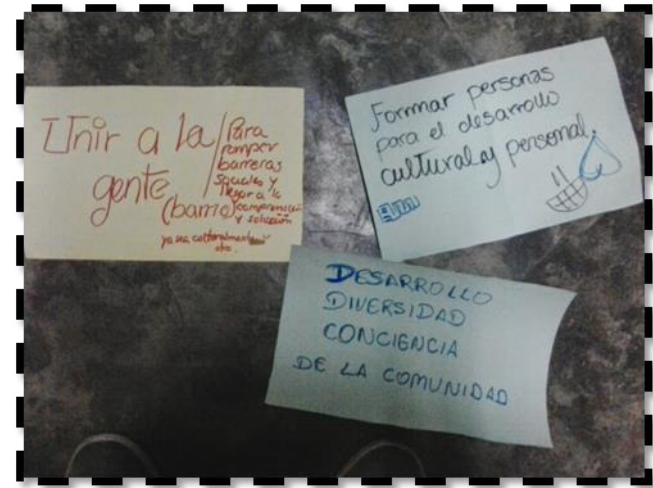 Unir a la
gente
(barrio)
Para
romper
barreras
sociales y
llegar a la
comprensión
y solución
ya sea culturalmente u
otro.
Formar personas
para el desarrollo
cultural y personal.
DESARROLLO
DIVERSIDAD
CONCIENCIA
DE LA COMUNIDAD